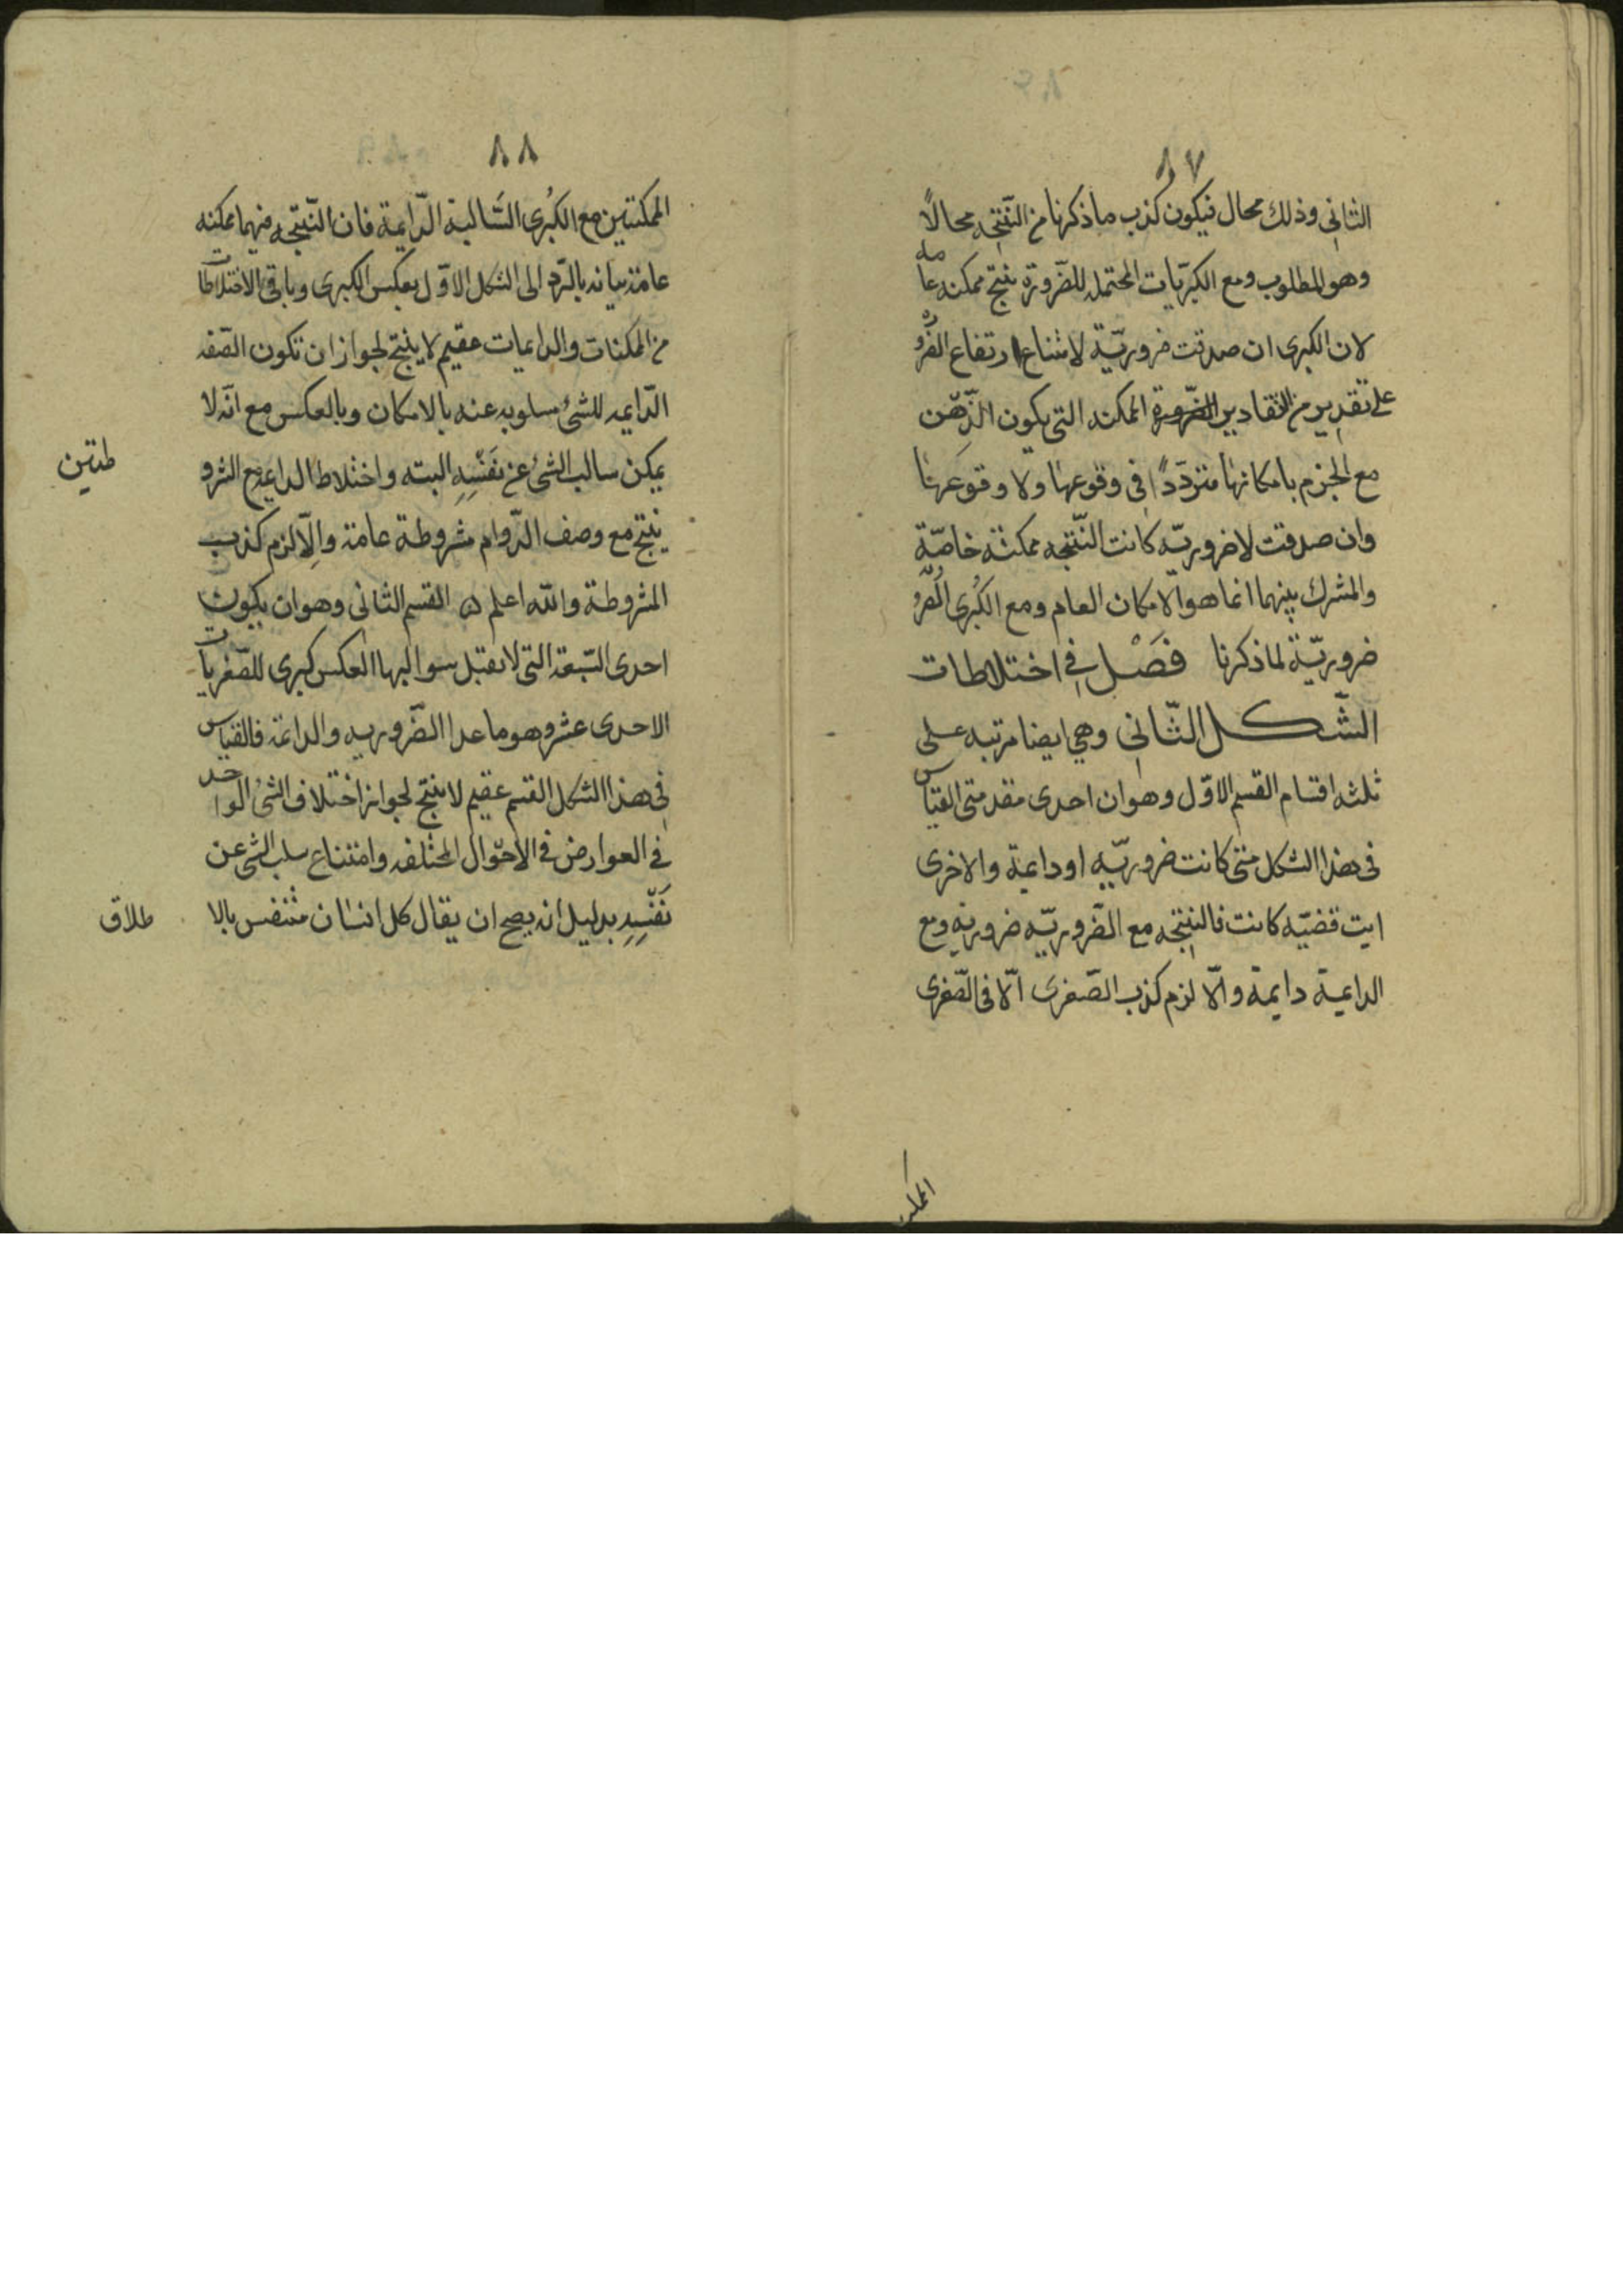 ٨٧
الثاني وذلك محال فيكون كذب ما ذكرنا من النتيجه محالاً
وهو المطلوب ومع الكبريات المحتمله للضرورة ينتج ممكنه عامه
لان الكبرى ان صدقت ضروريّة لامتناع ارتفاع الضروره
على تقدير من التقادير الممكنه التي يكون الذّهن
مع الجزم بامكانها متردّداً في وقوعها ولا وقوعها
وان صدقت لا ضروريّه كانت النّتيجه ممكنة خاصّة
والمشترك بينهما انما هو الامكان العام ومع الكُبرى الضرو
ضروريّة لما ذكرنا فصْل في اختلاطات
الشّكل الثّاني وهي ايضا مرتبه على
ثلثه اقسام القسم الاوّل وهو ان احدى مقدمتي القياس
في هذا الشكل متى كانت ضروريّه او دايمة والاخرى
ايت قضيّه كانت فالنتيجه مع الضروريّه ضروريه ومع
الدايمة دايمة والّا لزم كذب الصّغرى الّا في الصّغرى
الممكنـ
٨٨
الممكنتين مع الكُبرى السّالبة الدّايمة فان النّتيجه منهما ممكنه
عامة بيانه بالرّد الى الشكل الاوّل بعكس الكبرى وباقي الاختلاطات
من الممكنات والدايمات عقيم لا ينتج لجواز ان تكون الصّفه
الدّايمه للشئ مسلوبه عنه بالامكان وبالعكس مع انّه لا
يمكن سالب الشئ عن نَفْسِهِ البته واختلاط الدايمة مع المشرو
طتين
ينتج مع وصف الدّوام مشروطة عامة والّا لزم كذب
المشروطة والله اعلم القسم الثاني وهو ان يكون
احدى السّبعة التي لا تقبل سوالبها العكس كبرى للصّغريات
الاحدى عشر وهو ما عدا الضّروريه والدايمة فالقياس
في هذا الشكل القسم عقيم لا ينتج لجواز اختلاف الشئ الواحد
في العوارض في الاحوال المختلفه وامتناع سلب الشئ عن
نَفْسِهِ بدليل انه يصح ان يقال كل انسان متنفس بالا
طلاق